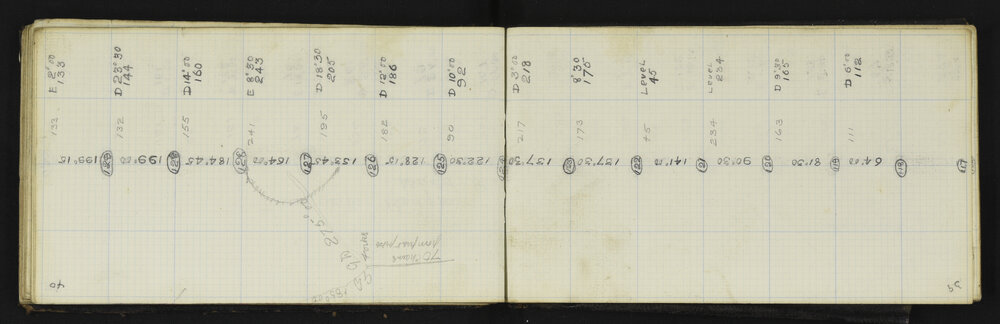 E 2°00
133
D 23°30
144
D 14°00
160
E 8°30
243
D 18°30
205
D 12°00
186
D 10°00
92
D 3°00
218
175
LEVEL
45
LEVEL
234
D 9°30
165
D 6°00
112
132
132
155
241
195
182
90
217
173
45
234
163
111
199°15
129
199°00
128
184°45
164°00
127
153°45
126
128°15
125
122°30
137°30
123
137°30
122
141°00
121
90°30
120
81°30
119
64°00
118
117
40
39